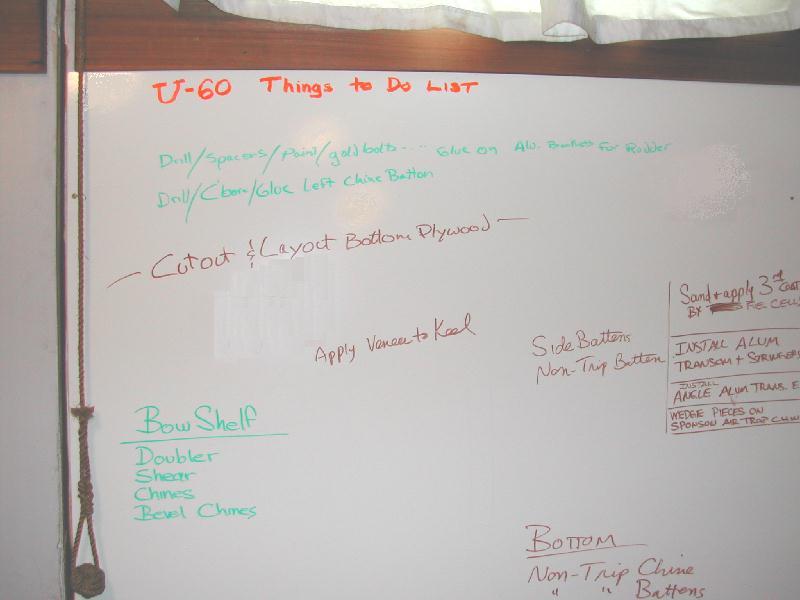 U-60 Things to Do List
Drill/Spacers/Paint/gold bolts.... Glue on Alu. for Rudder
Drill/C'bore/Glue Left Chine Batton
— Cutout & Layout Bottom Plywood —
Apply Veneer to Keel
Side Battens
Non-Trip Batten
Sand + apply 3rd Coat
BY F.E. CELL
INSTALL ALUM
TRANSOM + STRINGERS
INSTALL
ANGLE ALUM TRANS. E
WEDGE PIECES ON
SPONSON AIR TRAP CHIN
Bow Shelf
Doubler
Shear
Chines
Bevel Chines
Bottom
Non-Trip Chine
" " Battens